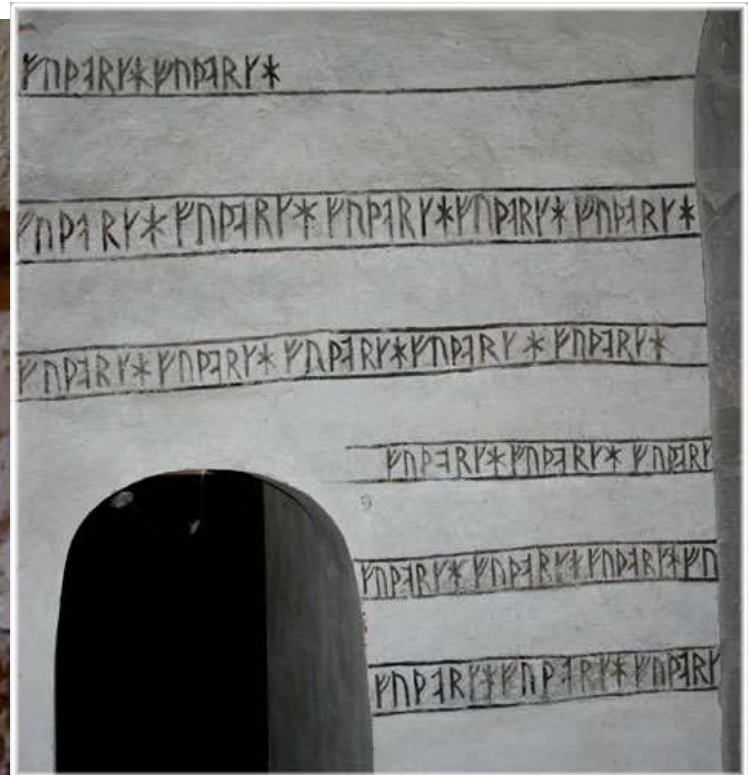 ᚠᚢᚦᚮᚱᚴᚼᚠᚢᚦᚮᚱᚴᚼ
ᚠᚢᚦᚮᚱᚴᚼ ᚠᚢᚦᚮᚱᚴᚼ ᚠᚢᚦᚮᚱᚴᚼ ᚠᚢᚦᚮᚱᚴᚼ ᚠᚢᚦᚮᚱᚴᚼ
ᚠᚢᚦᚮᚱᚴᚼ ᚠᚢᚦᚮᚱᚴᚼ ᚠᚢᚦᚮᚱᚴᚼ ᚠᚢᚦᚮᚱᚴᚼ ᚠᚢᚦᚮᚱᚴᚼ
ᚠᚢᚦᚮᚱᚴᚼ ᚠᚢᚦᚮᚱᚴᚼ ᚠᚢᚦᚮᚱᚴ
ᚠᚢᚦᚮᚱᚴᚼ ᚠᚢᚦᚮᚱᚴᚼ ᚠᚢᚦᚮᚱᚴᚼ ᚠᚢ
ᚠᚢᚦᚮᚱᚴᚼ ᚠᚢᚦᚮᚱᚴᚼ ᚠᚢᚦᚮᚱᚴ